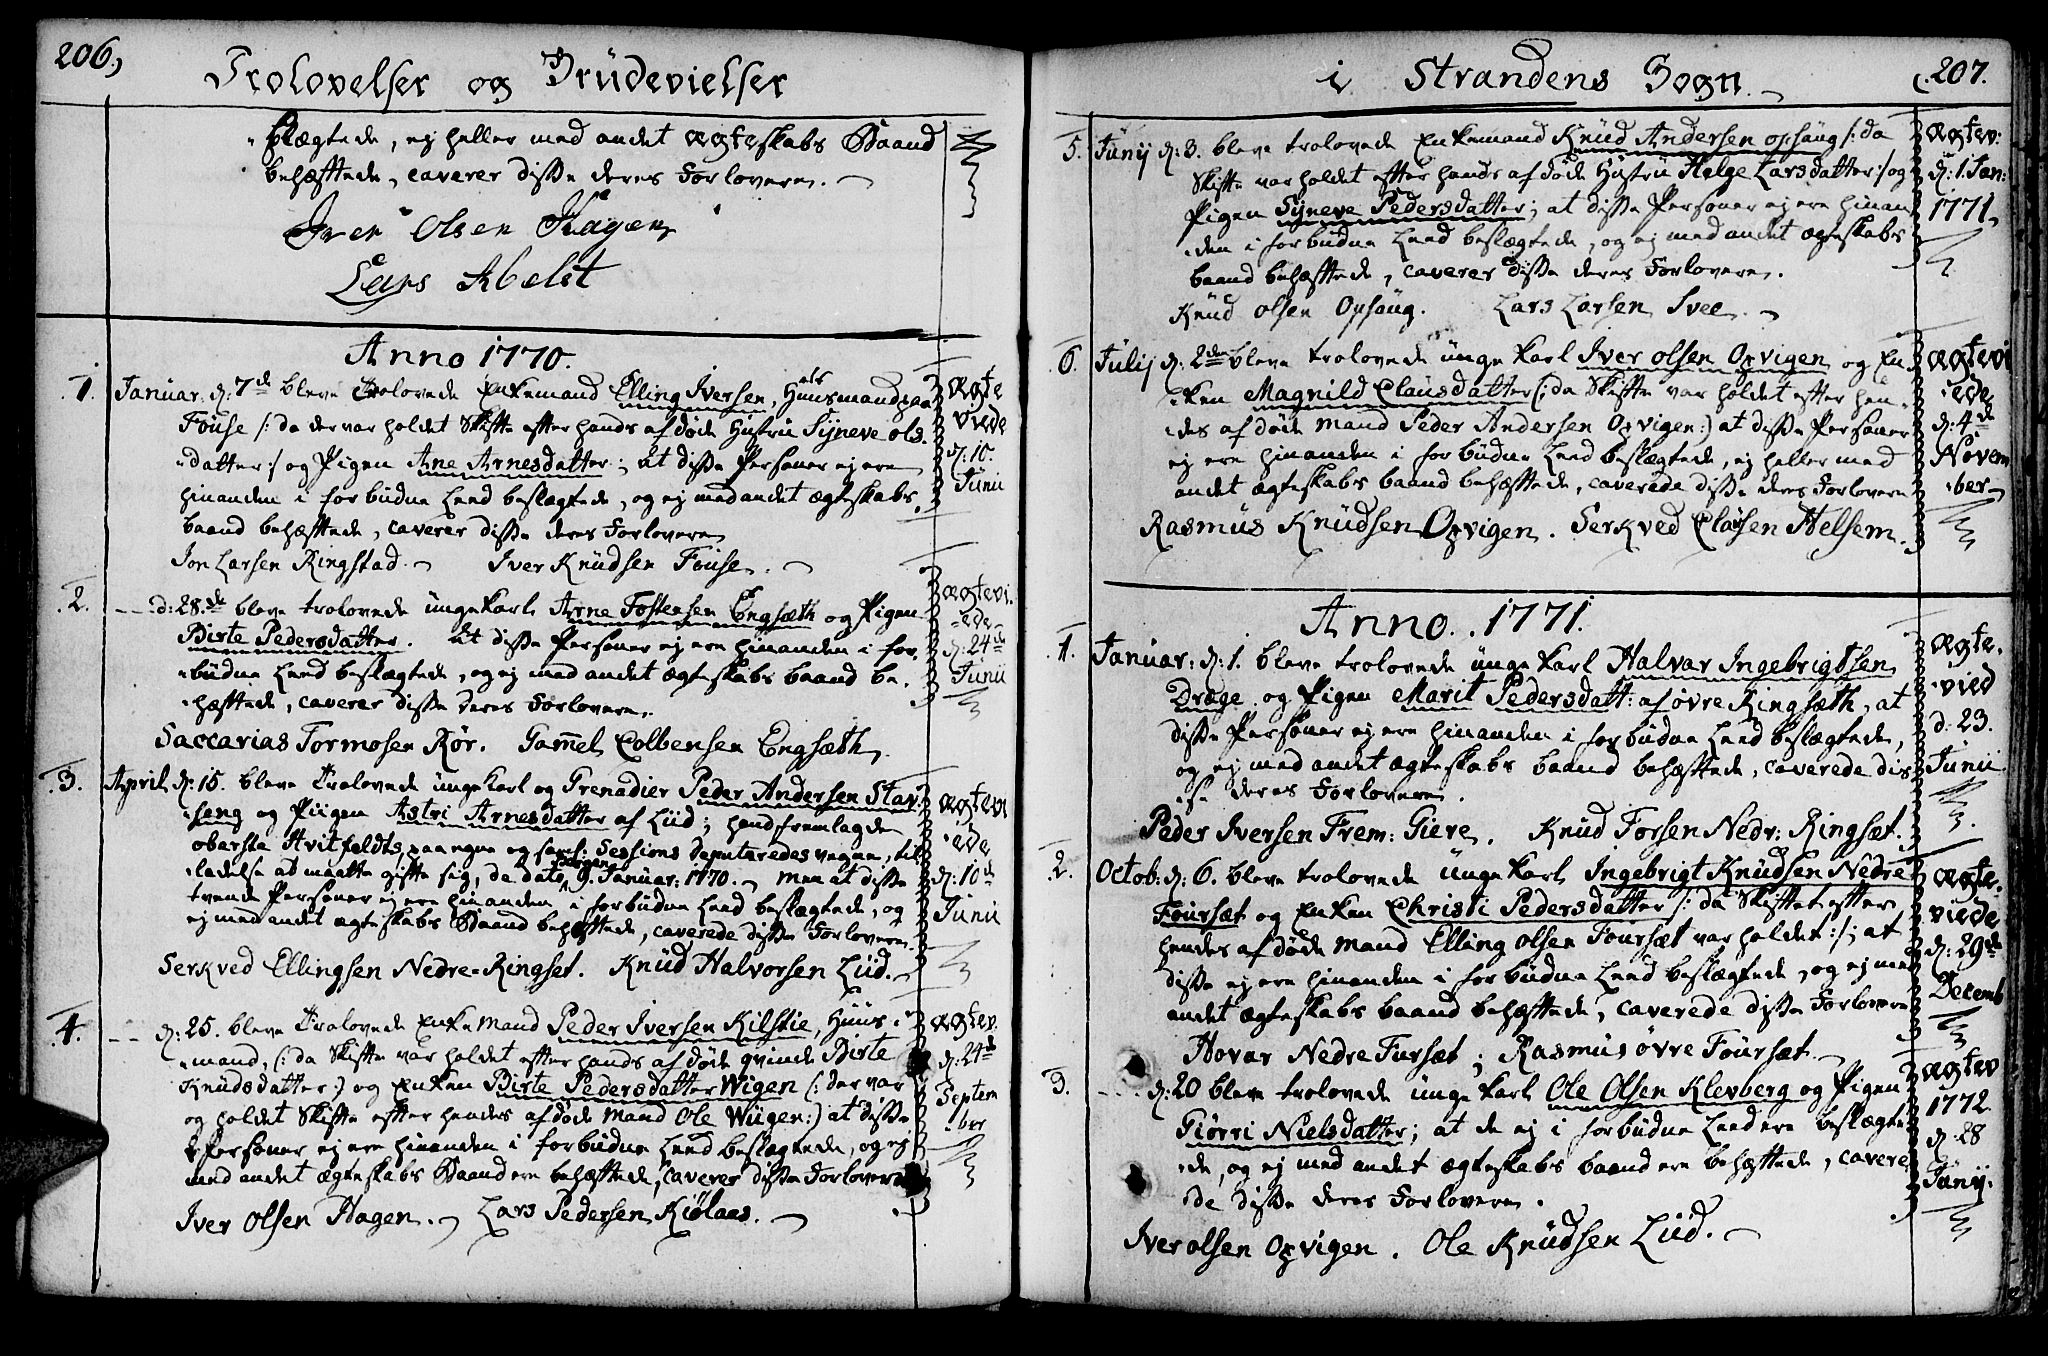 206.
Trolovelser og Brüdevielser
beslægtede, ej heller med andet ægteskabs Baand
behæfttede, caverer disse deres Forlovere.
Iver Olsen Hagen
Lars Abelst
Anno 1770.
1. Januar: d: 7de bleve Trolovede Enkemand Elling Iversen, Huusmand paa
Fouse /: da der var holdet Skifte efter hands afdøde Hustru Syneve ols
datter :/ og Pigen Ane Arnesdatter; at disse Personer ej ere
hinanden i forbudne Leed beslægtede, og ej med andet ægteskabs
baand behæfttede, caverer disse deres Forlovere
Jon Larsen Ringstad. Iver Knudsen Fouse.
ægte
viede
d: 10.
Junii
2. d: 28.de bleve trolovede ungekarl Arne Tostensen Engsæth og Pigen
Birte Pedersdatter. At disse Personer ej ere hinanden i for
budne Leed beslægtede, og ej med andet ægteskabs baand be
hæfttede, caverer disse deres Forlovere.
Saccarias Tormosen Rør. Gammel Colbensen Engsæth.
ægtevi
ede
d: 24de
Junii
3. April d: 15. bleve Trolovede ungekarl og Grenadier Peder Andersen Stav
seng og Piigen Astri Arnesdatter af Liid; hand fremlagde
oberste Hvitfeldts paa egne og saml: Sessions deputeredes vegne, til
ladelse at maatte gifte sig, de dato Bergen 9. Januar: 1770. Men at disse
tvende Personer ej ere hinanden i forbudne Leed beslægtede, og
ej med andet ægteskabs Baand behæfttede, caverede disse Forlovere
Serkved Ellingsen Nedre-Ringset. Knud Halvorsen Liid.
ægtevi
ede
d: 10de
Junii
4. d: 25. bleve Trolovede Enkemand Peder Iversen Kilstie, Huus
mand, (: da Skifte var holdet efter hands afdøde qvinde Birte
Knudsdatter :) og Enken Birte Pedersdatter Wigen (: der var
og holdet Skifte efter hendes afdøde mand Ole Wiigen :) at disse
Personer ej ere hinanden i forbudne Leed beslægtede, og ej
med andet ægteskabs Baand ere behæfttede, caverer disse Forlovere
Iver Olsen Hagen. Lars Pedersen Kiølaas.
ægtev:
d: 24de
Septem
ber
i Strandens Sogn
207.
5. Junij d: 3. bleve trolovede Enkemand Knud Andersen opsaug /: da
Skifte var holdet efter hands afdøde Hustru Helge Larsdatter :/ og
Pigen Syneve Pedersdatter; at disse Personer ej ere hinan
den i forbudne Leed beslægtede, og ej med andet ægteskabs
baand behæfttede, caverer disse deres Forlovere.
Knud olsen Opsaug. Lars Larsen Svee.
ægtev:
d: 1. Jan:
1771.
6. Julij d: 2de bleve trolovede ungekarl Iver olsen Opvigen og En
ken Magnild Clausdatter (: da Skifte var holdet efter hen
des afdøde mand Peder Andersen Opvigen :) at disse Personer
ej ere hinanden i forbudne Leed beslægtede, ej heller med
andet ægteskabs baand behæfttede, caverede disse deres Forlovere
Rasmus Knudsen Opvigen. Serkved Clausen Helsem.
ægtevi
ede
d: 4de
Novem
ber
Anno. 1771.
1. Januar: d: 1. bleve trolovede ungekarl Halvar Ingebrigtsen
Dræge og Pigen Marit Pedersdatt: af øvre Ringsæth, at
disse Personer ej ere hinanden i forbudne Leed beslægtede,
og ej med andet ægteskabs baand behæfttede, caverede dis
se deres Forlovere.
Peder Iversen Frem: Giere. Knud Torsen Nedr: Ringsæt.
ægte
vied
d: 23.
Junii
2. Octob: d: 6. bleve trolovede ungekarl Ingebrigt Knudsen Nedre
Foursæt og Enken Christi Pedersdatter /: da Skiftet efter
hendes afdøde mand Elling olsen Foursæt var holdet :/; at
disse ej ere hinanden i forbudne Leed beslægtede, og ej med
andet ægteskabs baand behæfttede, caverede disse Forlovere
Hovar Nedre Fursæt; Rasmus øvre Foursæt.
ægte
viede
d: 29de
Decemb
3. d: 20 bleve trolovede ungekarl Ole Olsen Klevberg og Pigen
Giørri Nielsdatter; at de ej i forbudne Leed ere beslægte
de, og ej med andet ægteskabs baand ere behæfttede, cavere
de disse deres Forlovere.
Iver olsen Opvigen. Ole Knudsen Liid.
ægtev
1772.
d: 28
Junij.